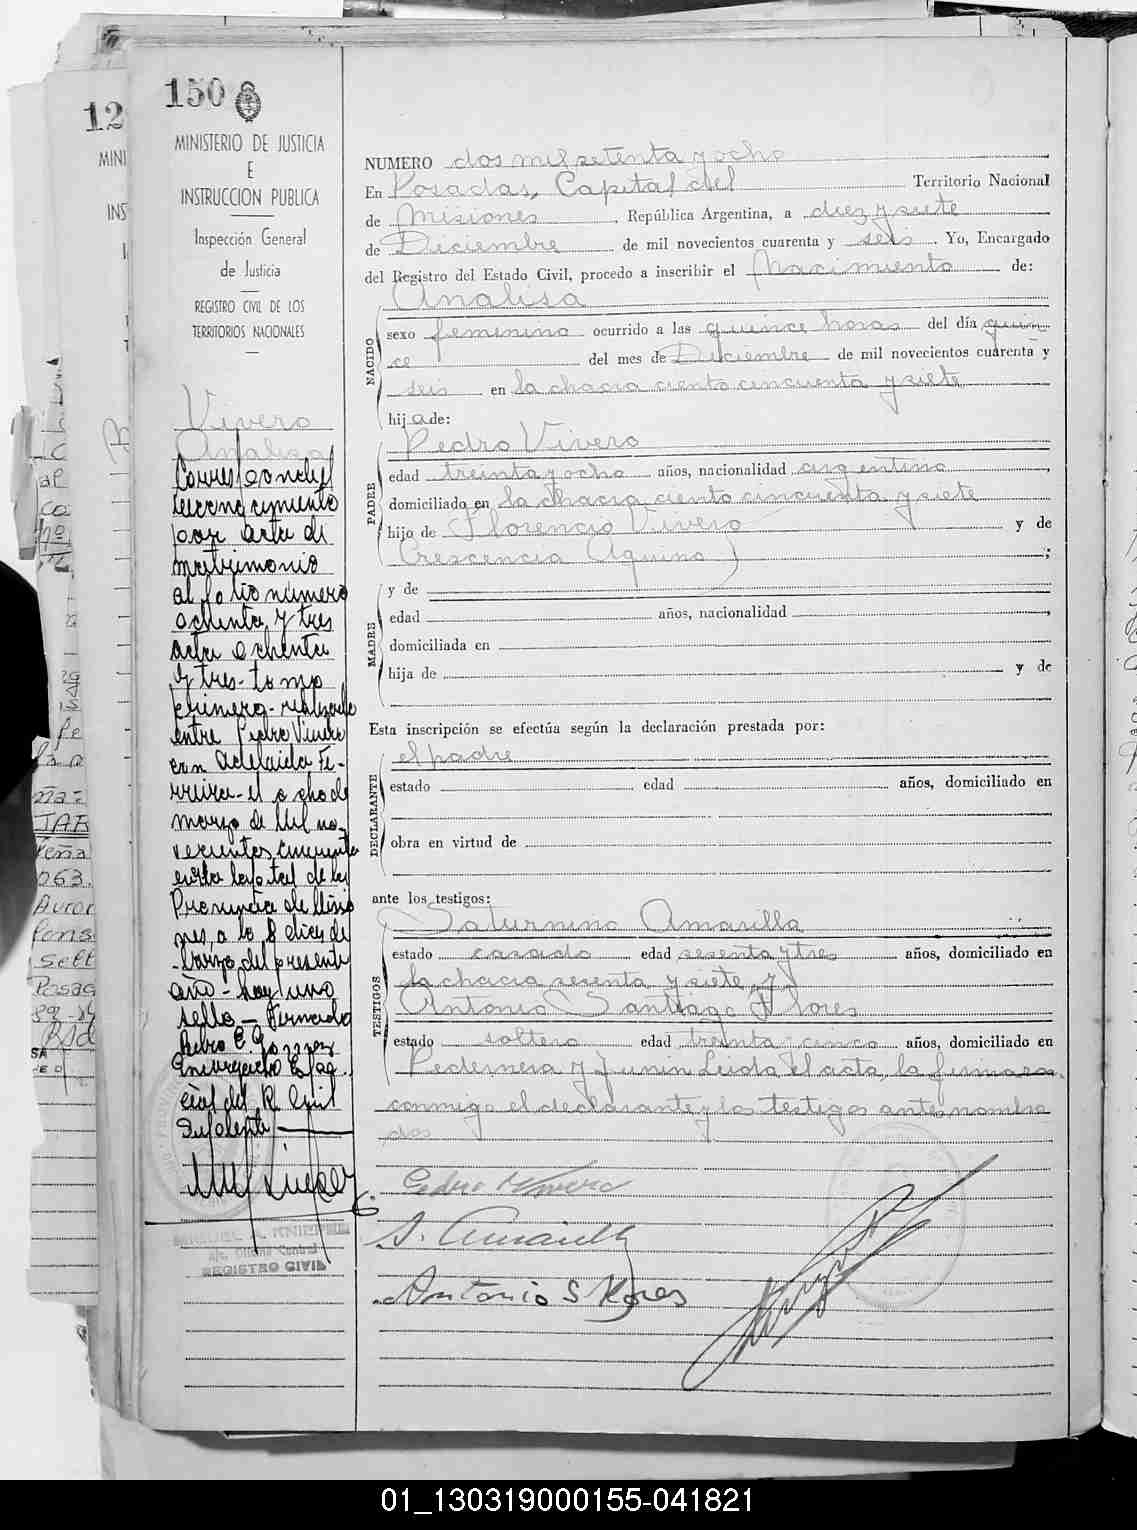 150
12
MINISTERIO DE JUSTICIA
E
INSTRUCCION PUBLICA
Inspección General
de Justicia
REGISTRO CIVIL DE LOS
TERRITORIOS NACIONALES
Vivero
Analisa
Corresponde el
reconocimiento
por acta de
matrimonio
al folio número
ochenta y tres
acta ochenta
y tres - tomo
primero - realizado
entre Pedro Vivero
con Adelaida Fe-
rreira - el ocho de
marzo de Mil no-
vecientos cincuenta
en la Capital de la
Provincia de Misio
nes, a los 8 días de
Marzo del presente
año - hay un
sello - Firmado
Pedro E. Gomez
Encargado
del R. Civil
Suplente
REGISTRO CIVIL
NUMERO dos mil setenta y ocho
En Posadas, Capital del Territorio Nacional
de Misiones, República Argentina, a diez y siete
de Diciembre de mil novecientos cuarenta y seis. Yo, Encargado
del Registro del Estado Civil, procedo a inscribir el Nacimiento de:
NACIDO
Analisa
sexo femenino ocurrido a las quince horas del día quin
ce del mes de Diciembre de mil novecientos cuarenta y
seis en la chacra ciento cincuenta y siete
hija de:
PADRE
Pedro Vivero
edad treinta y ocho años, nacionalidad argentino,
domiciliado en la chacra ciento cincuenta y siete
hijo de Florencio Vivero y de
Crescencia Aquino ;
MADRE
y de
edad años, nacionalidad ,
domiciliada en
hija de y de
Esta inscripción se efectúa según la declaración prestada por:
DECLARANTE
el padre
estado edad años, domiciliado en
obra en virtud de
ante los testigos:
TESTIGOS
Saturnino Amarilla
estado casado edad sesenta y tres años, domiciliado en
la chacra sesenta y siete y
Antonio Santiago Flores
estado soltero edad treinta y cinco años, domiciliado en
Pedernera y Junin Leida el acta, la firmaron
conmigo el declarante y los testigos antes nombra
dos
Pedro Vivero
S. Amarilla
Antonio S Flores
01_130319000155-041821